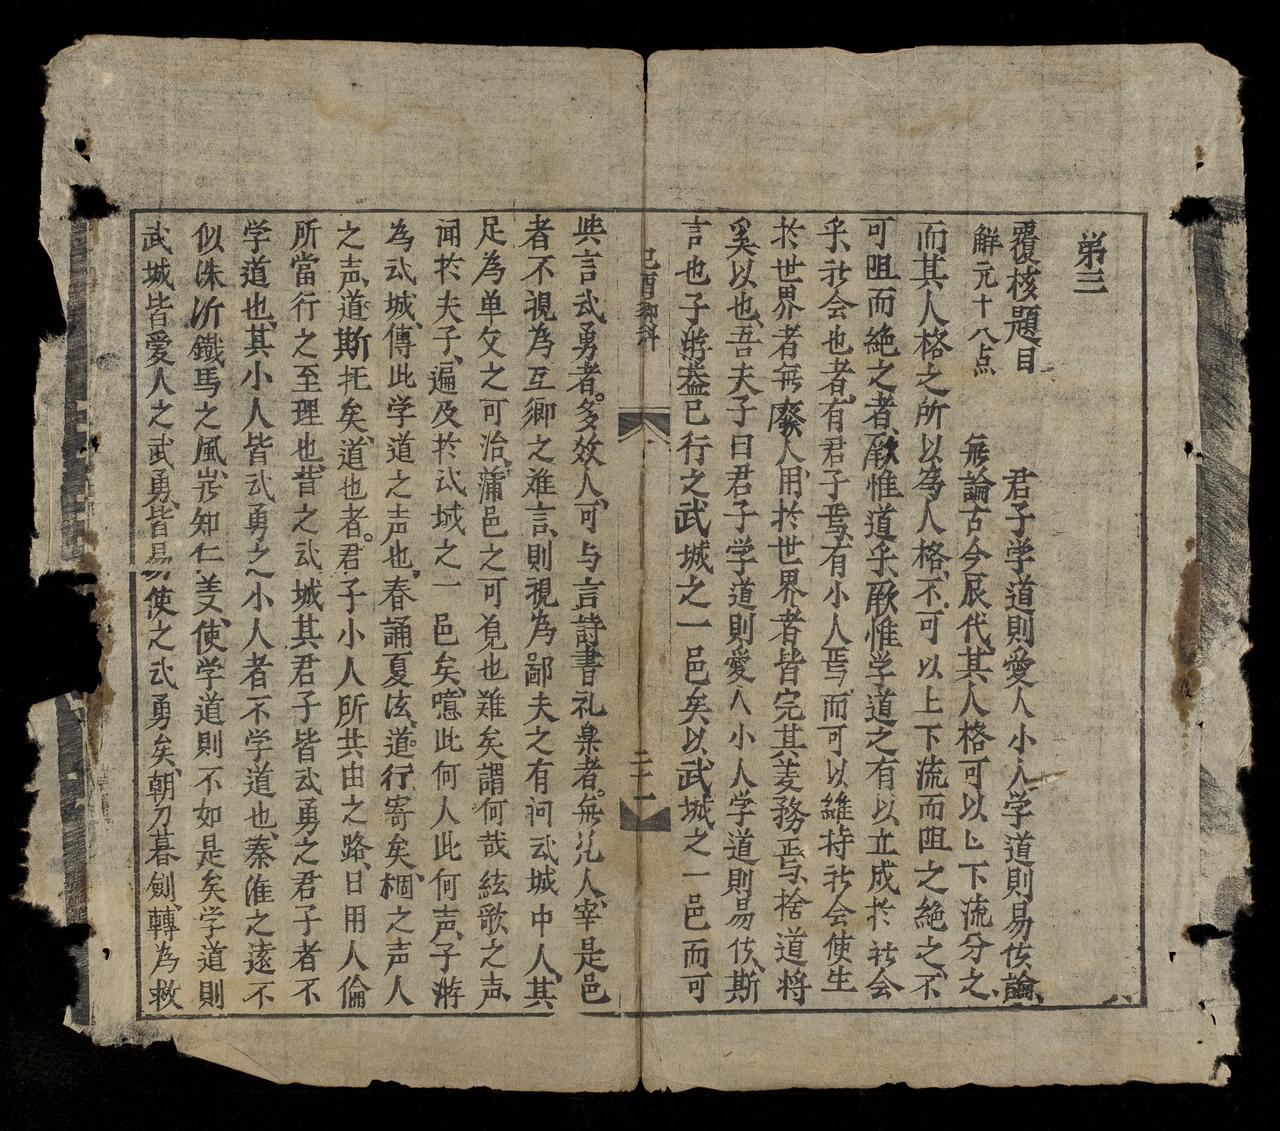 第三
覆核題目 君子学道則愛人小人学道則易使論
解元十八点 無論古今辰代其人格可以上下流分之
而其人格之所以為人格不可以上下流而阻之絶之不
可阻而絶之者厥惟道乎厥惟学道之有以立成於社会
乎社会也者有君子焉有小人焉而可以維持社会使生
於世界者無廢人用於世界者皆完其義務焉捨道將
奚以也吾夫子曰君子学道則愛人小人学道則易使斯
言也子游益已行之武城之一邑矣以武城之一邑而可
己酉鄉科
二十一
與言武勇者多效人可与言詩書礼楽者無几人宰是邑
者不視為互鄉之难言則視為鄙夫之有问武城中人其
足為单父之可治蒲邑之可覓也难矣謂何哉絃歌之声
闻於夫子遍及於武城之一邑矣噫此何人此何声子游
為武城傳此学道之声也春誦夏弦道行寄矣榈之声人
之声道斯托矣道也者君子小人所共由之路日用人倫
所當行之至理也昔之武城其君子皆武勇之君子者不
学道也其小人皆武勇之小人者不学道也秦淮之遠不
似洙沂鐵馬之風岂知仁義使学道則不如是矣学道則
武城皆愛人之武勇皆易使之武勇矣朝刀暮劍轉為救